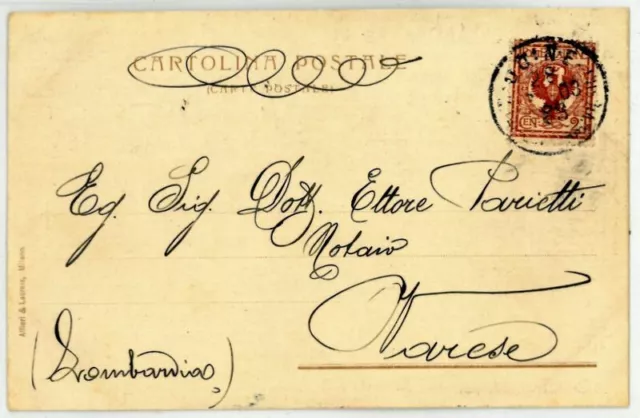 CARTOLINA POSTALE
(CARTE POSTALE)
UDINE
CEN. 2
Eg. Sig. Dott. Ettore Parietti
Notaio
Varese
(Lombardia)
Alfieri & Lacroix, Milano